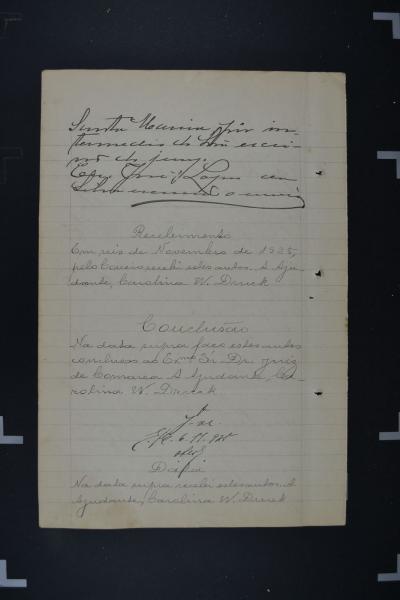 Santa Maria por in-
termedio do Snr escri-
vão do jury.
Eu, José Lopes da
Silva escrivão o escrevi
Recebimento
Em seis de Novembro de 1925,
pelo Correio recebi estes autos. A Aju-
dante, Carolina W. Druck
Conclusão
Na data supra faço estes autos
conclusos ao Exmo Sr. Dr. Juiz
de Comarca. A Ajudante Ca-
rolina W. Druck
6.11.925
Data
Na data supra recebi estes autos. A
Ajudante, Carolina W. Druck